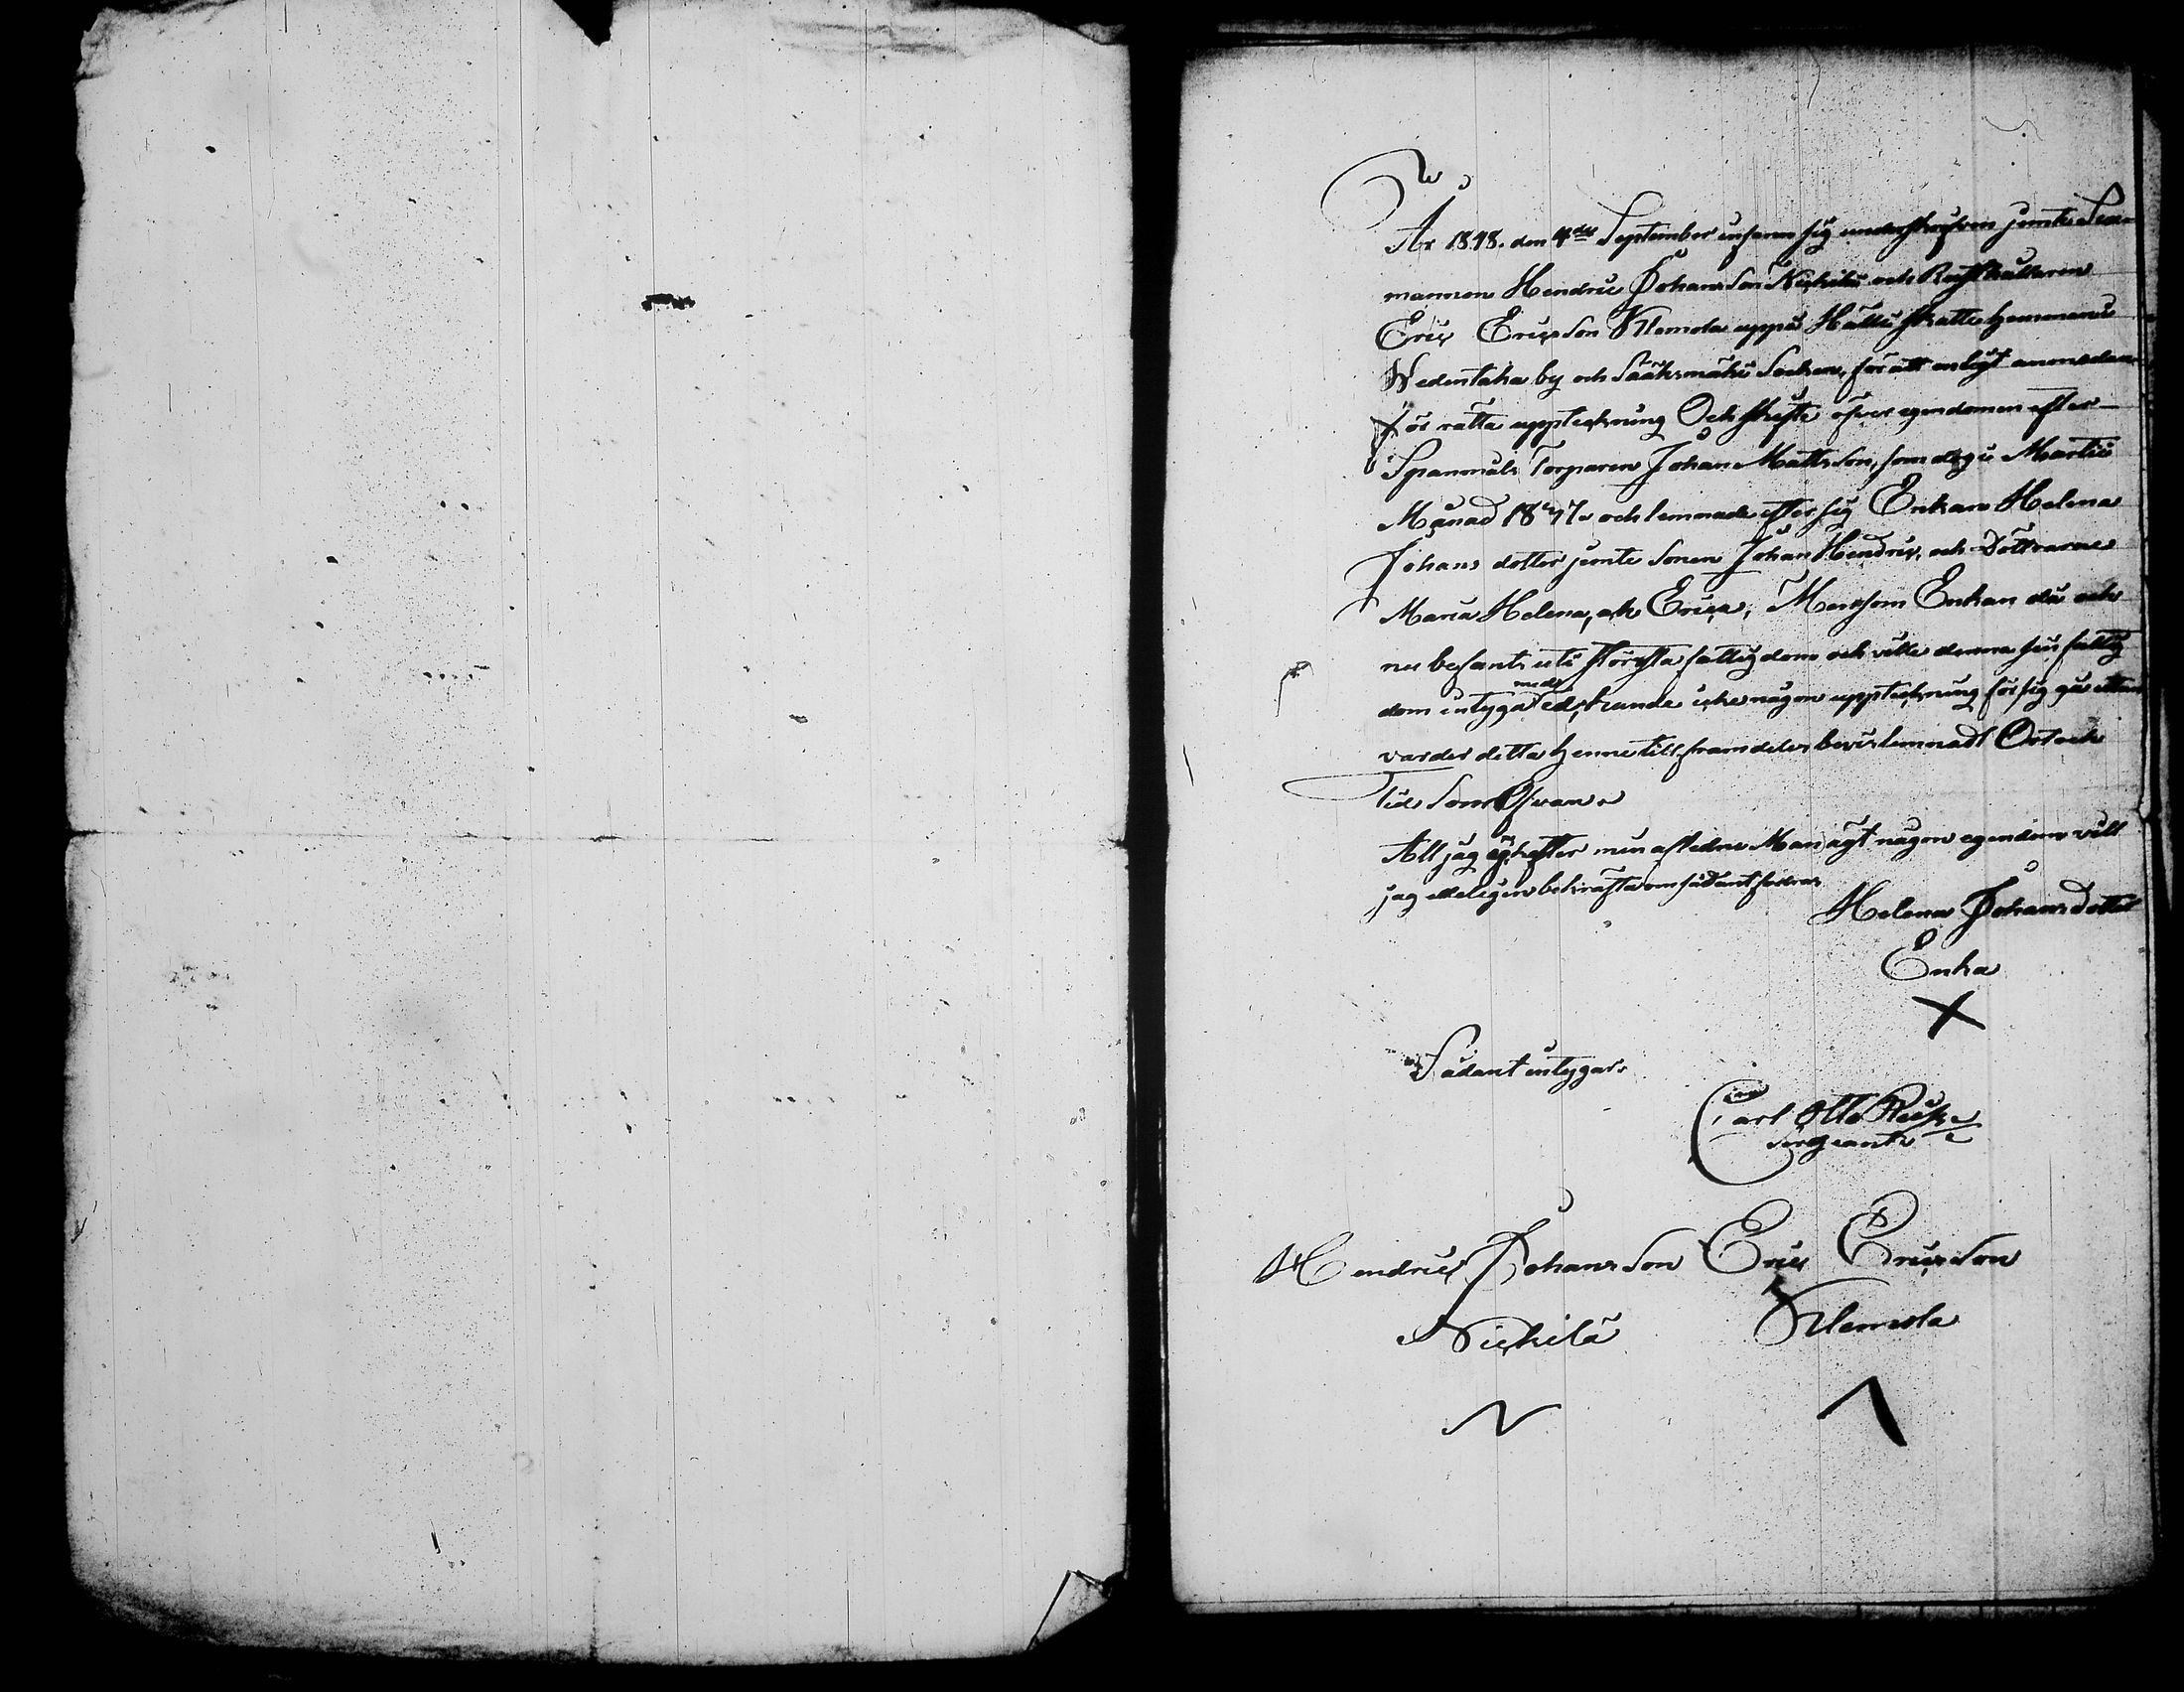 År 1848. den 4de September infann sig underskrefven jemte Sex-
mannen Hendric Johansson Nickilä och Rusthållaren
Eric Ericsson Klemola uppå Hallu skatte hemmans
Wedentaka by och Sääksmäki Socken, för att enligt anmodan
för rätta uppteckning Och skifte öfver egendomen efter
Spanmåls Torparen Johan Mattsson, som dog i Martii
Månad 1847. och lemnade efter sig Enkan Helena
Johans dotter jemte Sonen Johan Hendric, och Döttrarne
Maria Helena, och Erica, Men som Enkan då och
nu befants uti största fattigdom och ville denna sin fattig
dom intyga med Ed, kunde icke någon uppteckning för sig gå utan
varder detta henne till framdeles bevis lemnadt Ort och
tid Som Ofvan.
Att jag ej efter min afledne Man ägt någon egendom vill
jag edeligen bekräfta om sådant fodras
Helena Johansdotter
Enka
X
Sådant intygar.
Carl Otto
Sergeant
Hendric Johansson Eric Ericsson
Nickilä Klemola